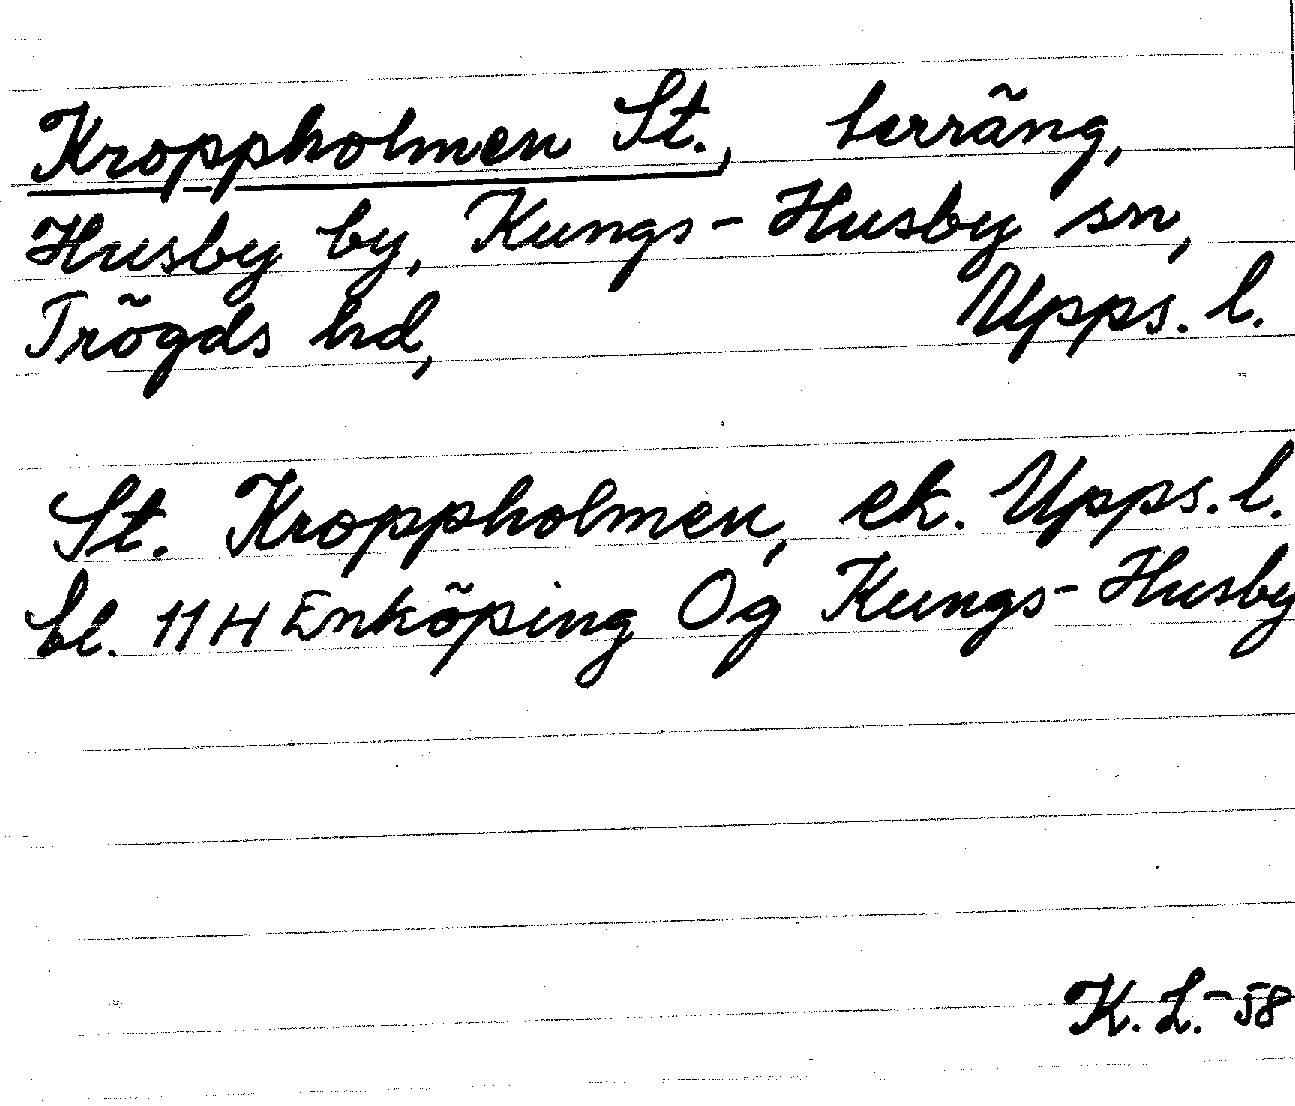 Kroppholmen St., terräng,
Husby by, Kungs-Husby sn,
Trögds hd, Upps. l.
St. Kroppholmen, ek. Upps. l.
bl. 11 H Enköping Og Kungs-Husby
K. L. -58